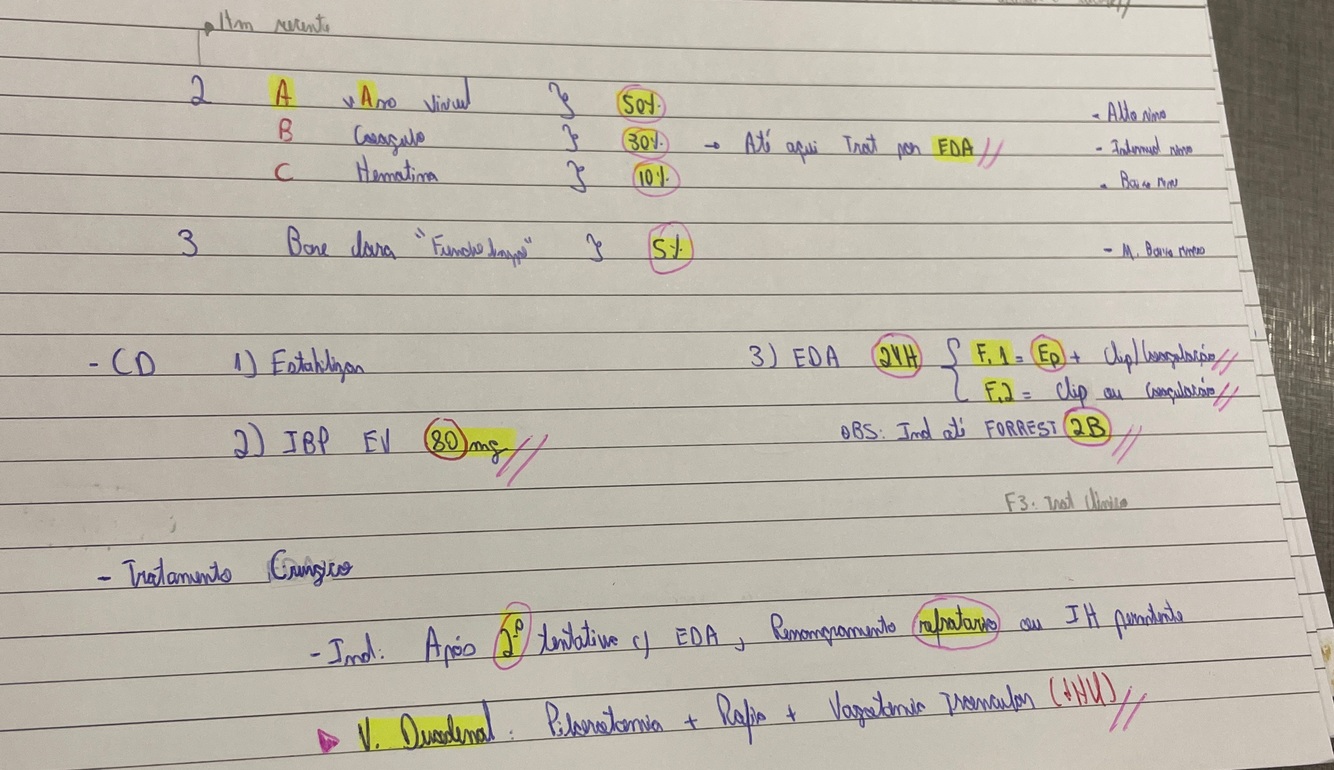 Hm recente
2 A vAso visivel } 50%. - Alto risco
B Coagulo } 30%. → Até aqui Trat por EDA // - Intermed risco
C Hematina } 10%. - Baixo risco
3 Base clara "Fundo limpo" } 5%. - M. Baixo risco
- CD 1) Estabilizar 3) EDA 24H { F.1 = Ep + Clip/Coagulação //
F.2 = Clip ou Coagulação //
2) IBP EV 80 mg // OBS: Ind até FORREST 2B //
F3. Trat Clínico
- Tratamento Cirurgico
- Ind: Após 2ª tentativa c/ EDA, Ressangramento refratario ou IH persistente
V. Duodenal: Pilorotomia + Rafia + Vagotomia Troncular //